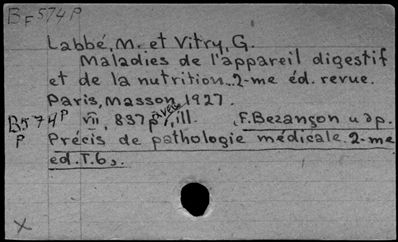 BF574P
Labbé, M. et Vitry, G.
Maladies de l'appareil digestif
et de la nutrition. 2-me éd. revue.
Paris, Masson, 1927.
B574P VII, 837 p. avec ill. F. Bezançon u dp.
P Précis de pathologie médicale. 2-me
éd. T. 6
X